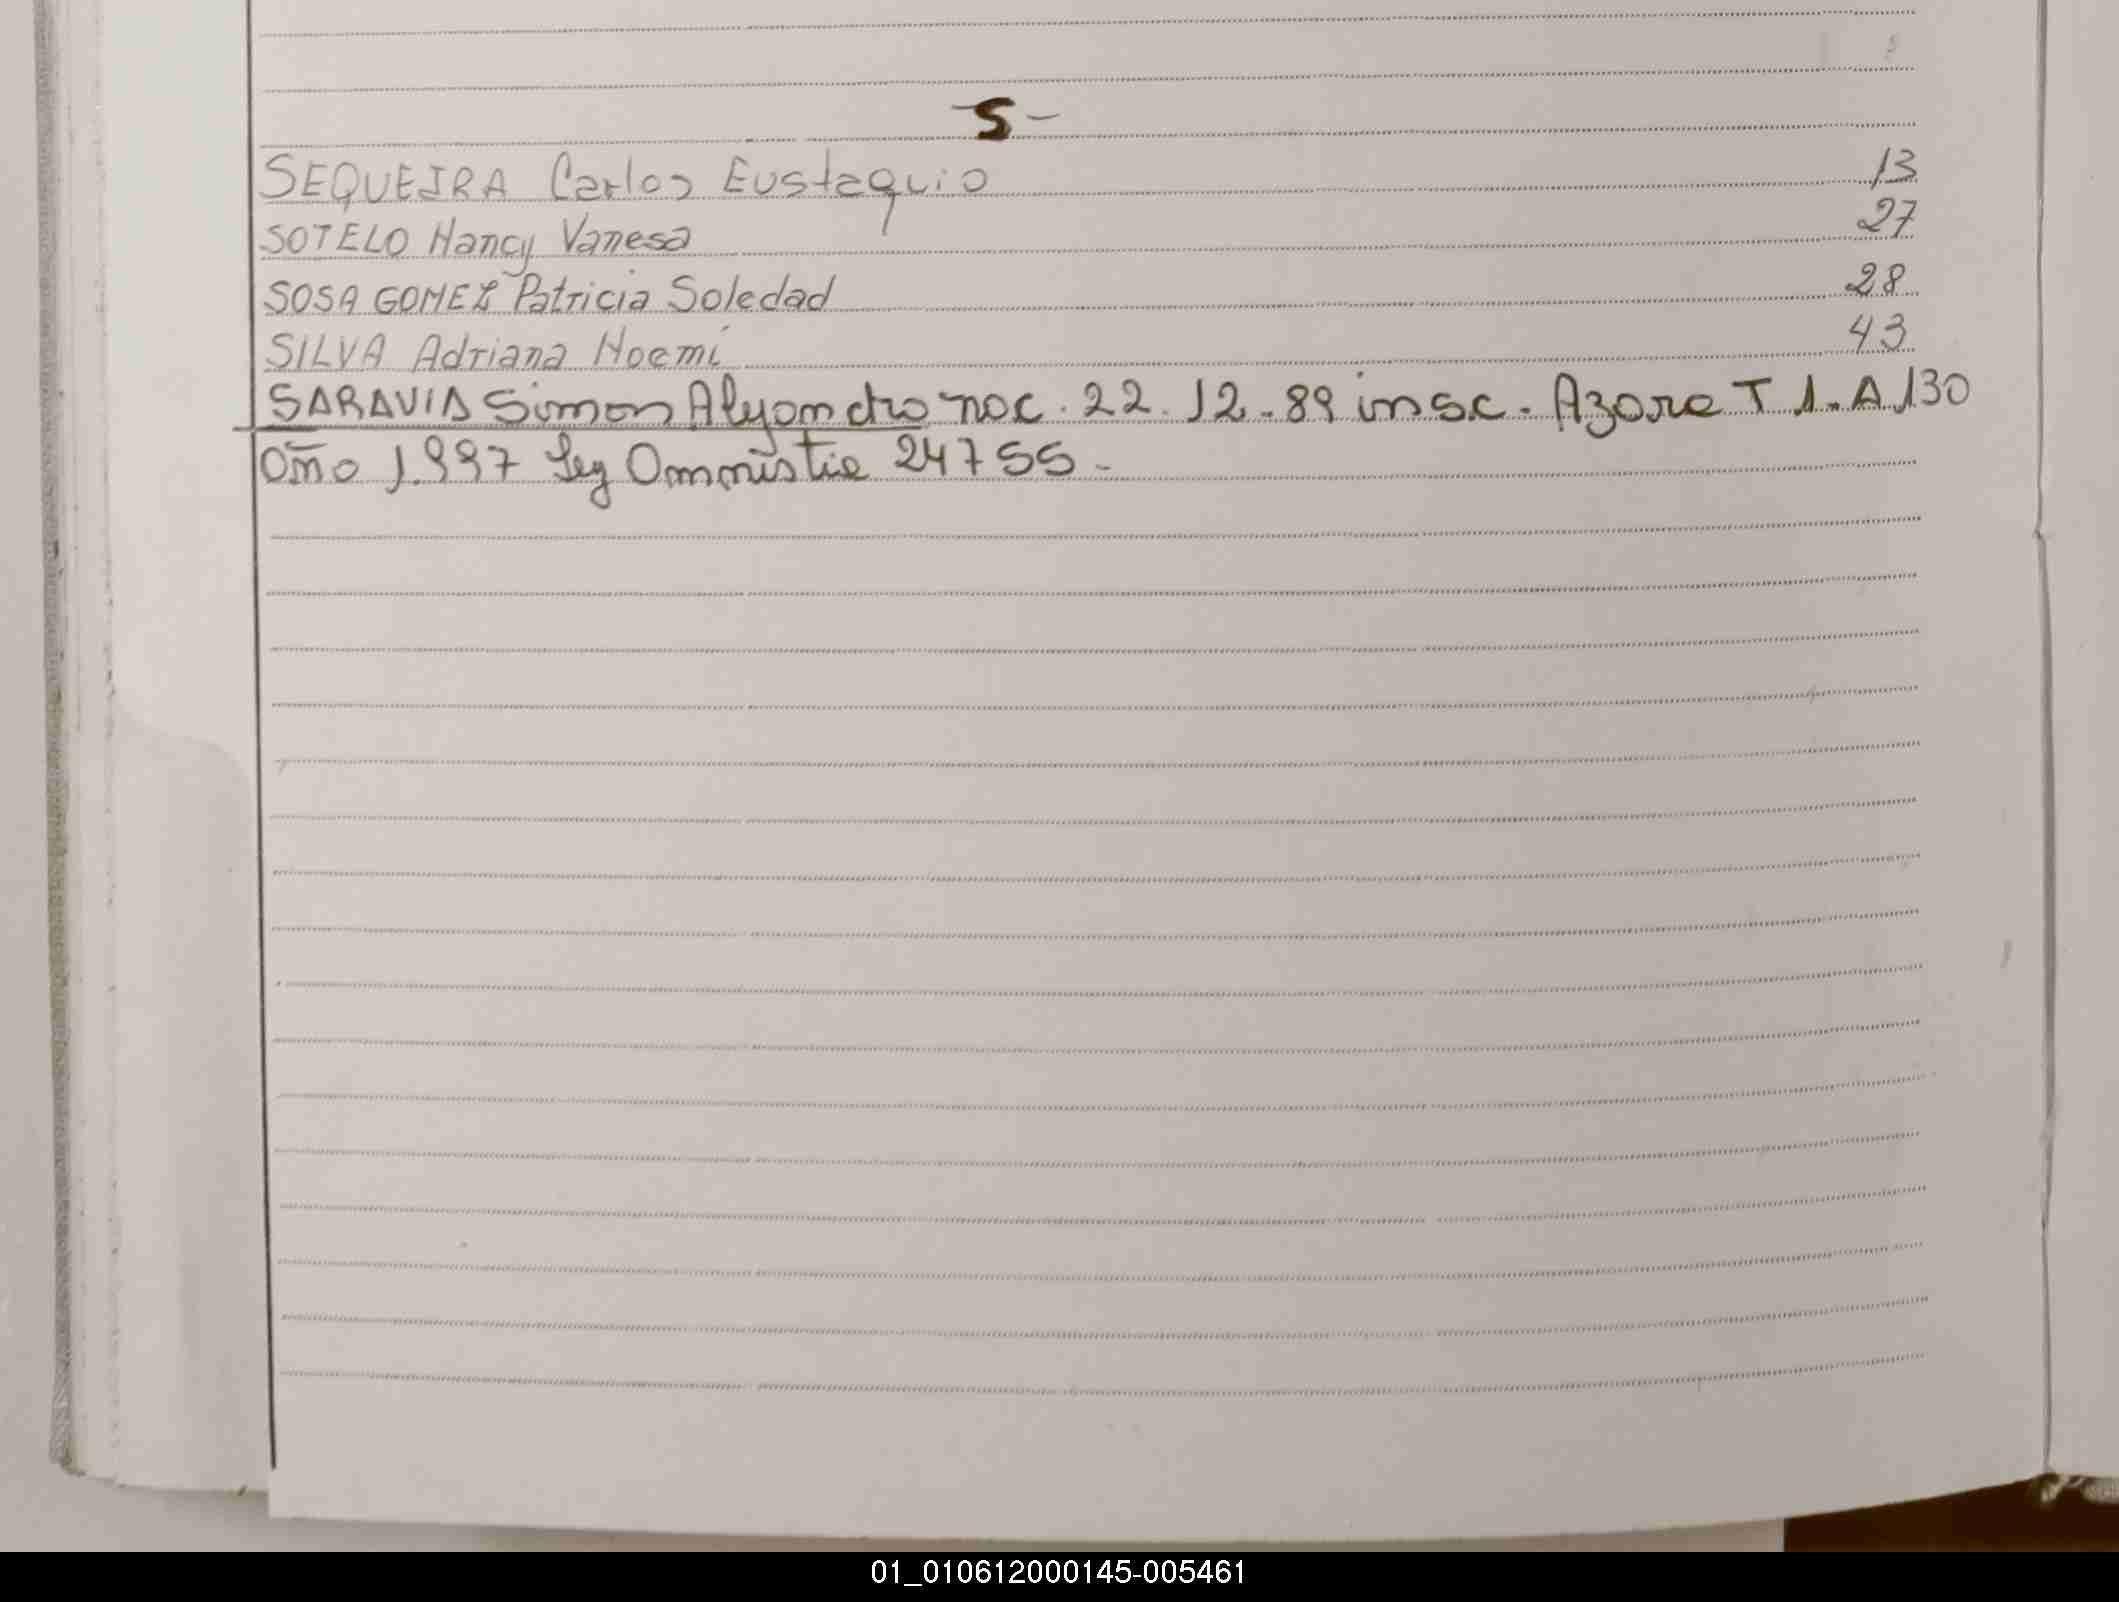 S-
SEQUEIRA Carlos Eustaquio 13
SOTELO Nancy Vanesa 27
SOSA GOMEZ Patricia Soledad 28
SILVA Adriana Noemí 43
SARAVIA Simon Alejandro nac. 22.12.89 insc. Azara T 1. A 130
año 1.997 Ley Amnistia 24755.-
01_010612000145-005461